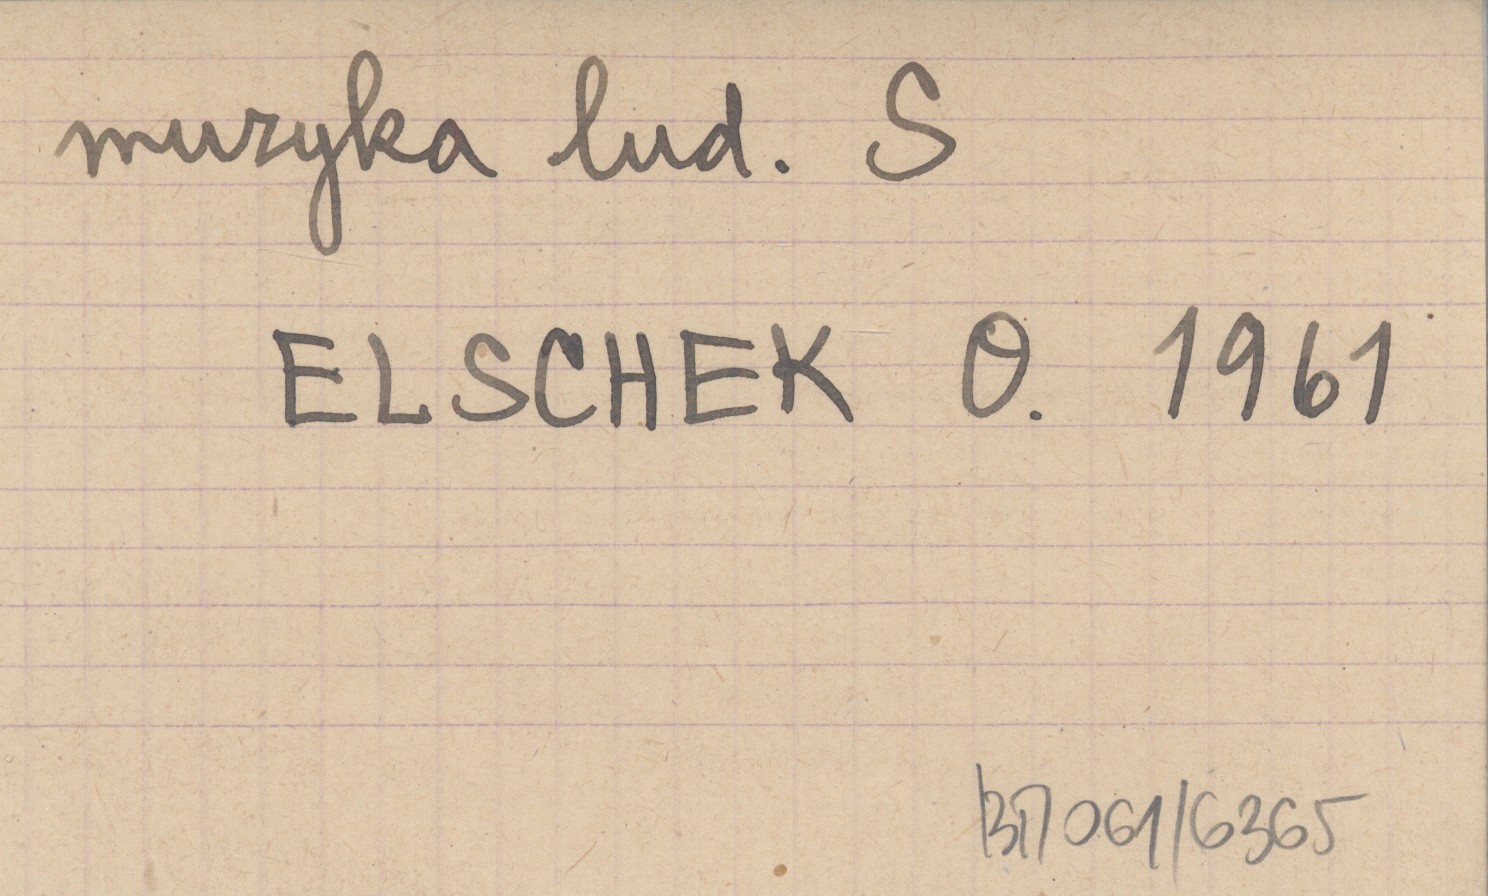 muzyka lud. S
ELSCHEK O. 1961
061/6365